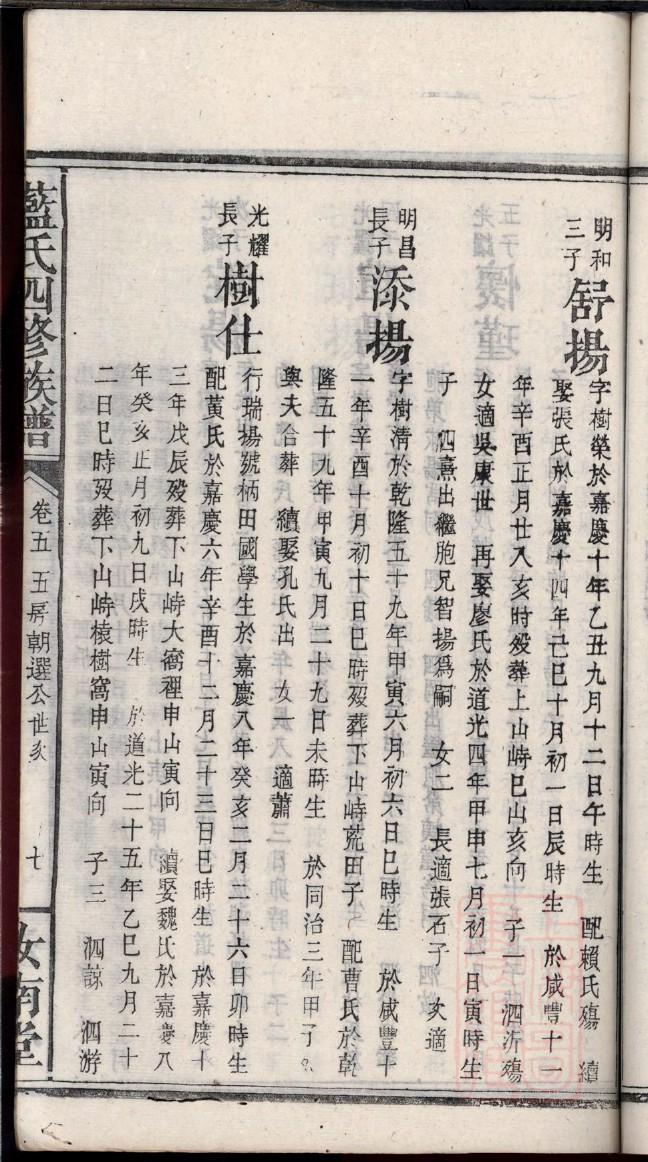 明和
三子
舒揚
字樹榮於嘉慶十年乙丑九月十二日午時生 配賴氏殤 續
娶張氏於嘉慶十四年己巳十月初一日辰時生 於咸豐十一
年辛酉正月廿八亥時歿葬上山峙巳山亥向 子一 泗沂殤
女適吳康世 再娶廖氏於道光四年甲申七月初一日寅時生
子 泗熹出繼胞兄智揚爲嗣 女二 長適張石子 次適
明昌
長子
添揚
字樹清於乾隆五十九年甲寅六月初六日巳時生 於咸豐十
一年辛酉十月初十日巳時歿葬下山峙荒田子 配曹氏於乾
隆五十九年甲寅九月二十九日未時生 於同治三年甲子
與夫合葬 續娶孔氏出 女一 適蕭
光耀
長子
樹仕
行瑞揚號柄田國學生於嘉慶八年癸亥二月二十六日卯時生
配黃氏於嘉慶六年辛酉十二月二十三日巳時生 於嘉慶十
三年戊辰歿葬下山峙大窩裡申山寅向 續娶魏氏於嘉慶八
年癸亥正月初九日戌時生 於道光二十五年乙巳九月二十
二日巳時歿葬下山峙榱樹窩申山寅向 子三 泗諒 泗游
藍氏四修族譜
卷五 五房朝選公世系
七
汝南堂